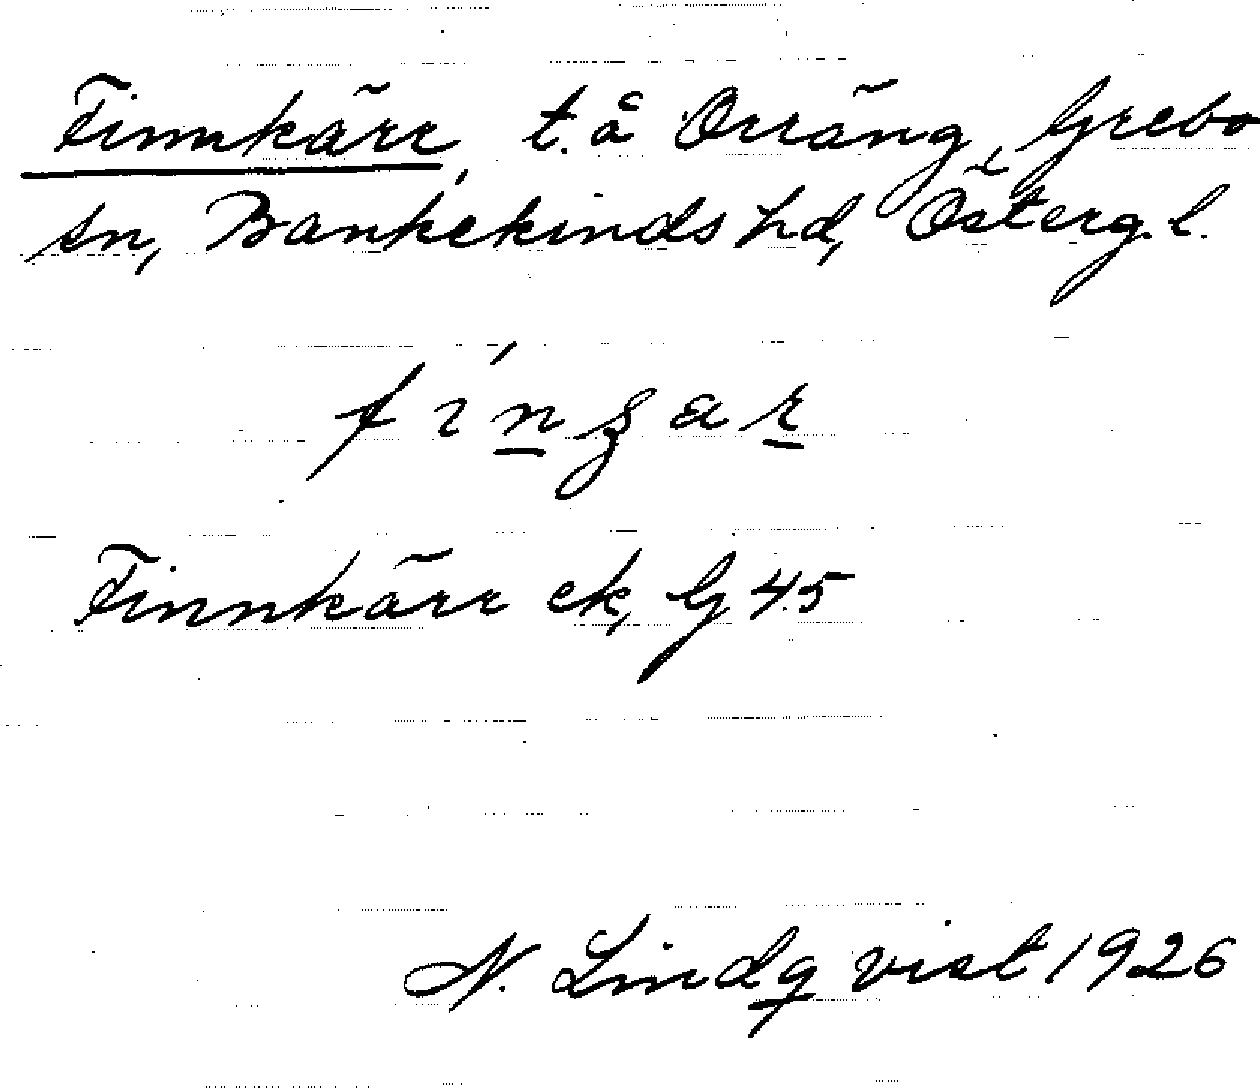 Finnkärr, t. å Orräng, Grebo
sn, Bankekinds hd, Österg. l.
Finnkärr ek, G 45
N. Lindqvist 1926